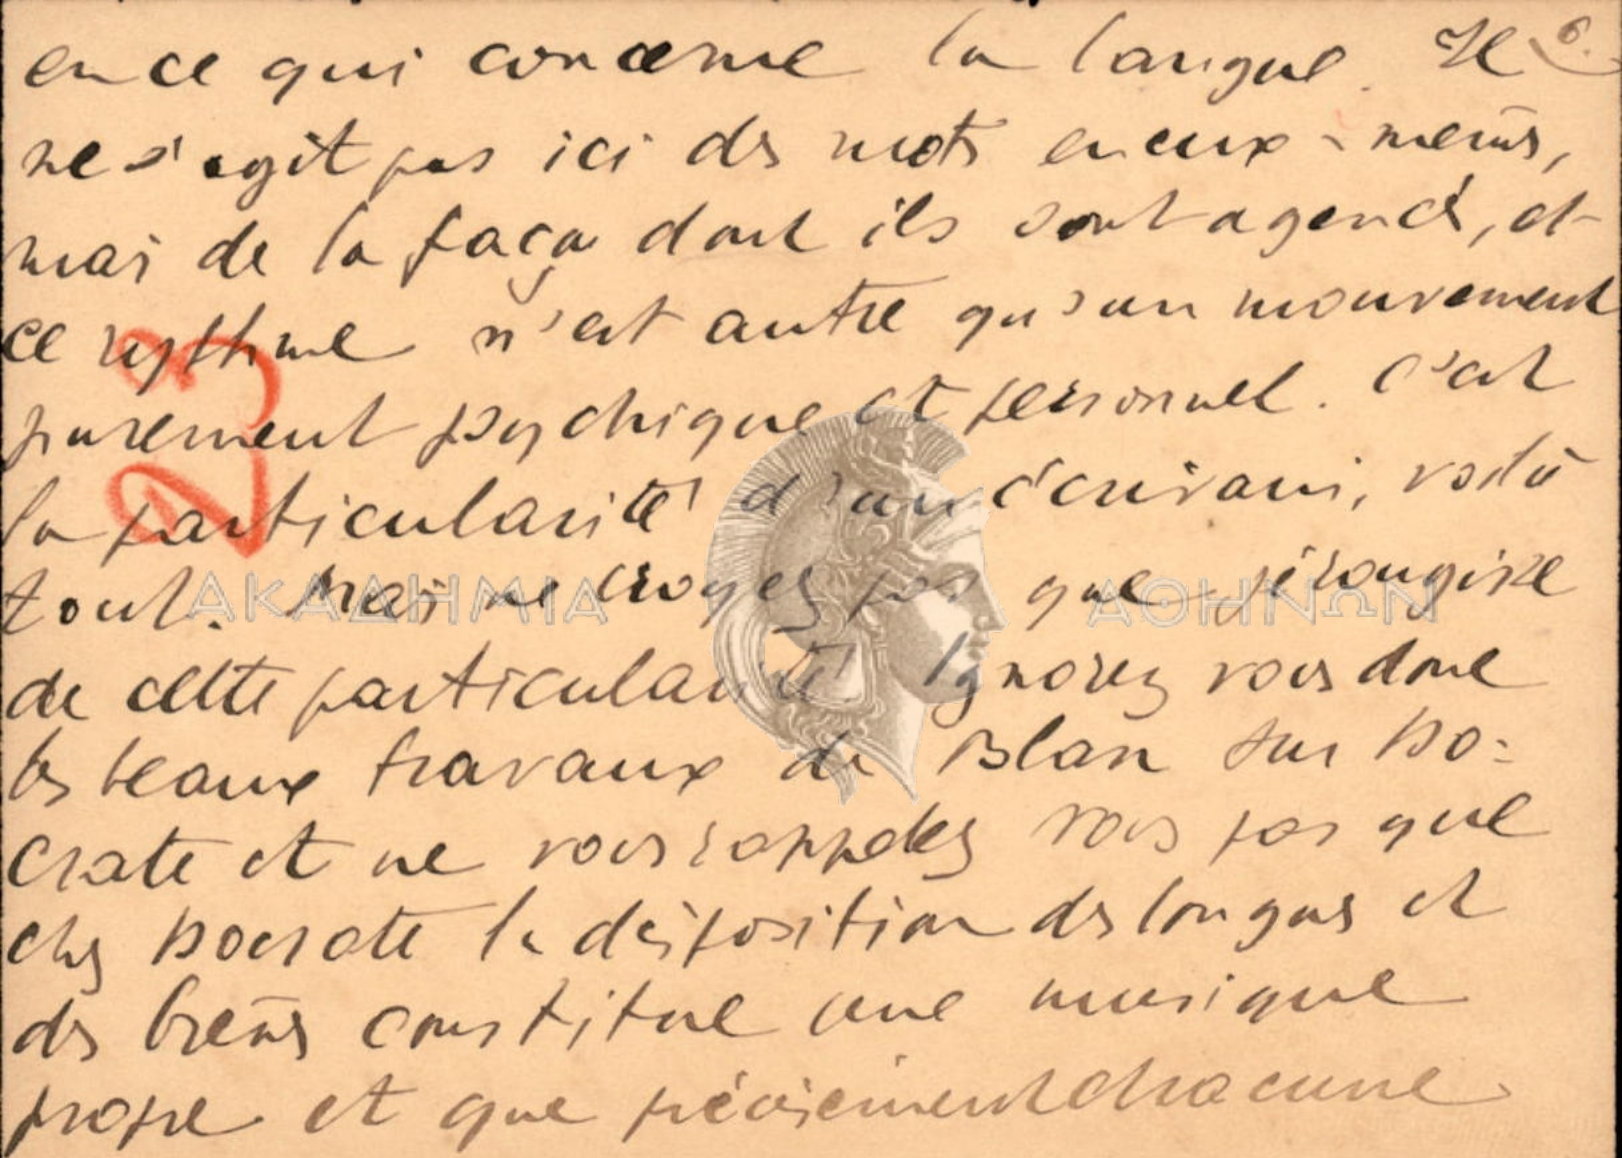 en ce qui concerne la langue. Il 6.
ne s'agit pas ici des mots en eux-mêmes,
mais de la façon dont ils sont agencés, et
ce rythme n'est autre qu'un mouvement
purement psychique et personnel. C'est
23
la particularité d'un écrivain, voilà
tout. Mais ne croyez pas que je rougisse
ΑΚΑΔΗΜΙΑ ΑΘΗΝΩΝ
de cette particularité. Ignorez vous donc
les beaux travaux de Blass sur Iso-
crate et ne vous rappelez vous pas que
chez Isocrate la disposition des longues et
des brèves constitue une musique
propre et que précisément chacune